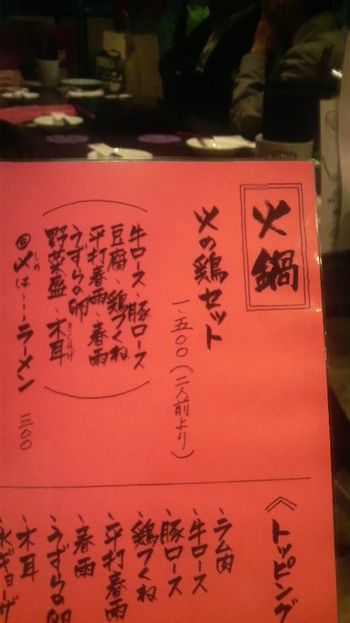 火鍋
火の鶏セット
一、五〇〇(二人前より)
牛ロース 豚ロース
豆腐 鶏つくね
平打春雨 春雨
うずらの卵
野菜盛 木耳
@〆は…ラーメン 三〇〇
トッピング
ラム肉
牛ロース
豚ロース
鶏つくね
平打春雨
春雨
うずらの卵
木耳
水ギョーザ